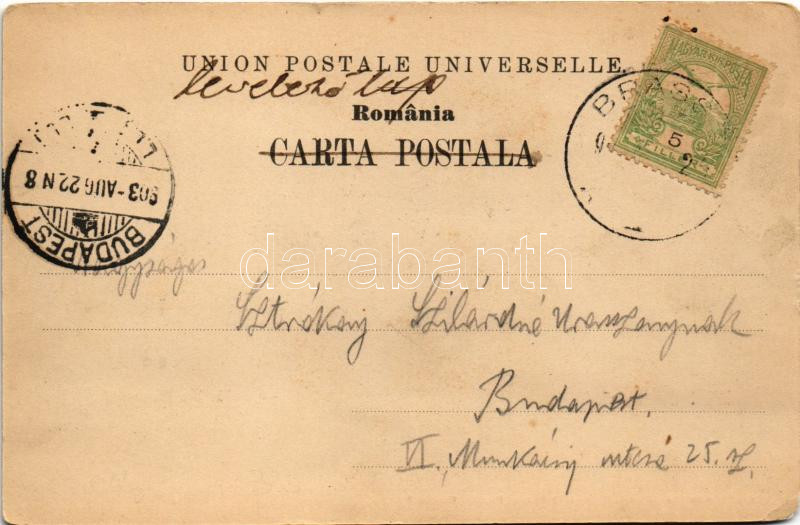 UNION POSTALE UNIVERSELLE.
levelező lap
România
CARTA POSTALA
BRASSÓ
MAGYAR KIR. POSTA
5
FILLÉR
903-AUG 22 N 8
BUDAPEST
darabanth
Nagyságos
Sztrókay Szilárdné Uraszonynak
Budapest,
VI. Munkácsy utcza 25. sz.